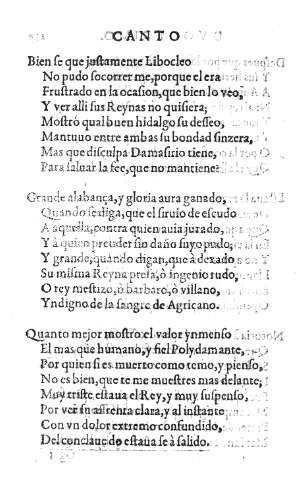 CANTO
Bien se que justamente Libocleo
No pudo socorrer me, porque el era
Frustrado en la ocasion, que bien lo veo,
Y ver alli sus Reynas no quisiera;
Mostrò qual buen hidalgo su desseo,
Mantuuo entre ambas su bondad sinzera,
Mas que disculpa Damasirio tiene,
Para saluar la fee, que no mantiene?
Grande alabança, y gloria aura ganado,
Quando se diga, que el siruio de escudo
A aquella, contra quien auia jurado,
Y à quien prender sin daño suyo pudo,
Y grande, quando digan, que à dexado
Su misma Reyna presa, ò ingenio rudo,
O rey mestizo, ò barbaro, ò villano,
Yndigno de la sangre de Agricano.
Quanto mejor mostrò el valor ynmenso
El mas que humano, y fiel Polydamante,
Por quien si es muerto como temo, y pienso,
No es bien, que te me muestres mas delante;
Muy triste estaua el Rey, y muy suspenso,
Por ver su afrenta clara, y al instante
Con vn dolor extremo confundido,
Del conclaue do estaua se à salido.